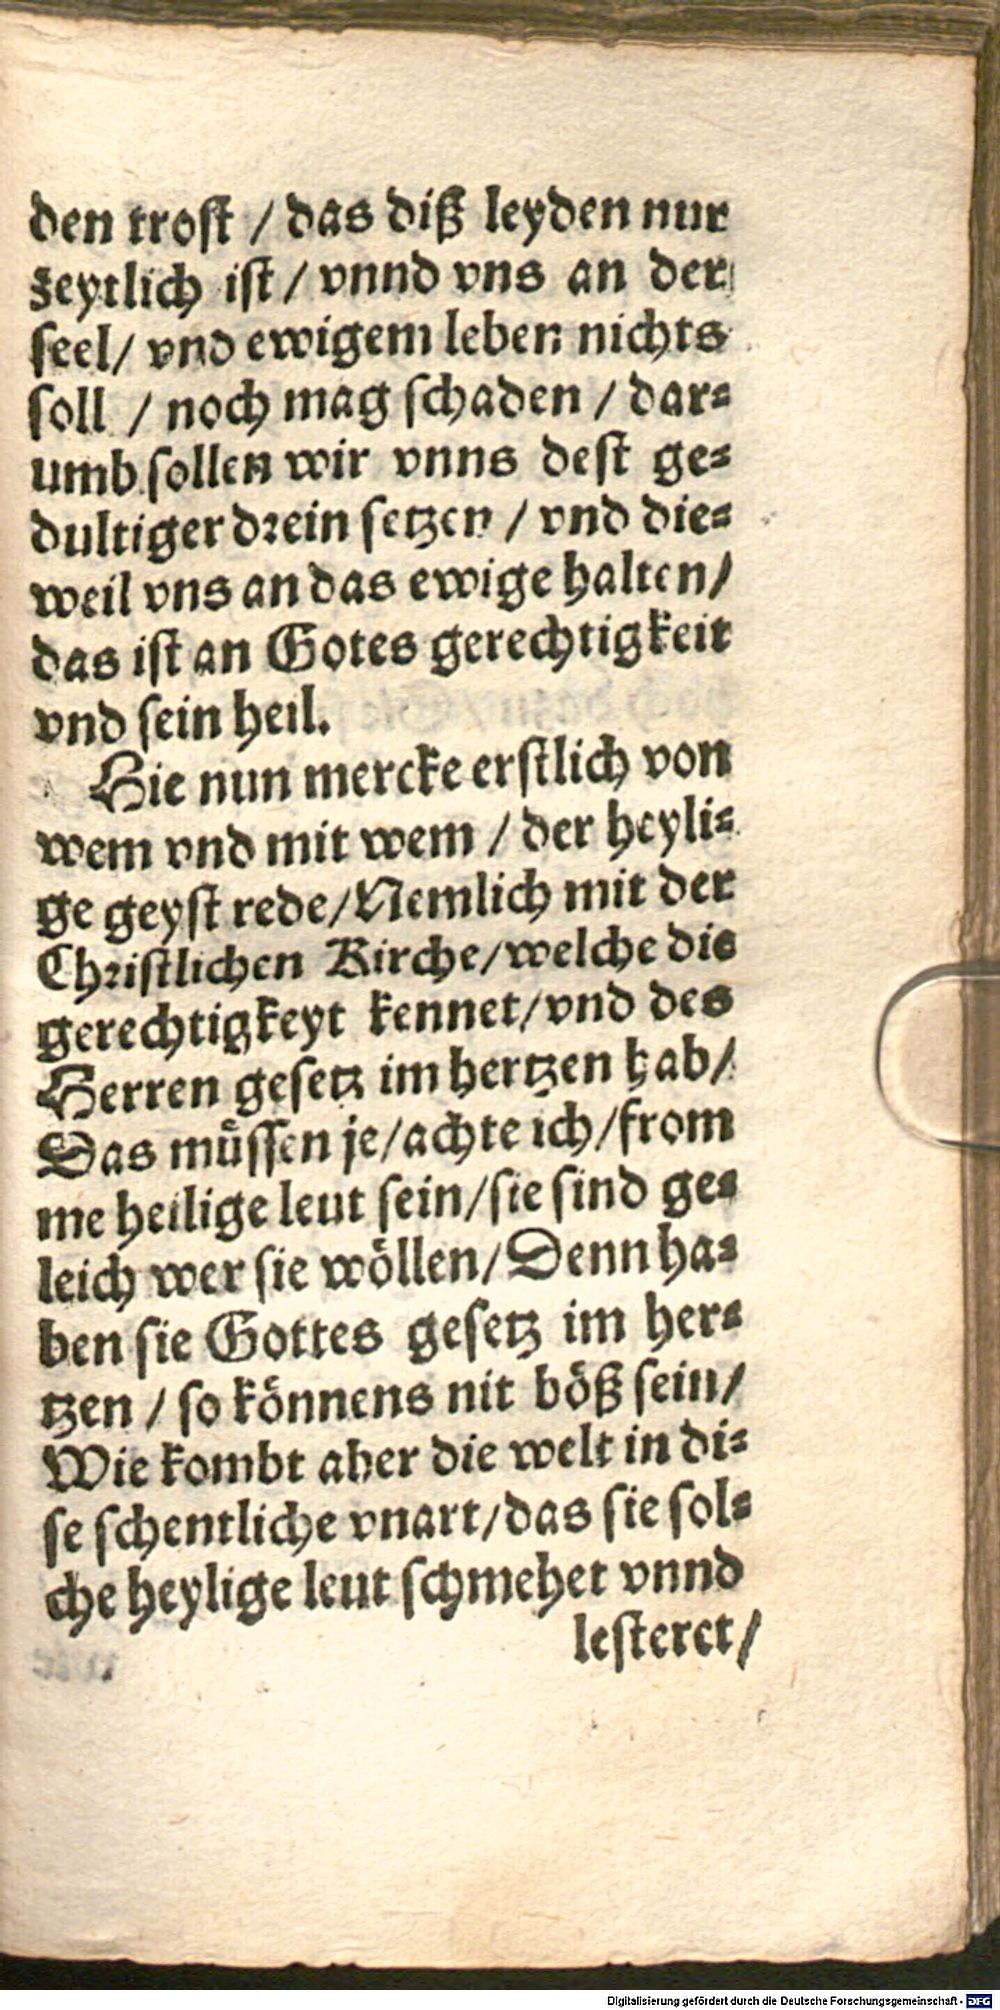 den trost / das diß leyden nur
zeytlich ist / vnnd vns an der
seel / vnd ewigem leben nichts
soll / noch mag schaden / dar⸗
umb sollen wir vnns dest ge⸗
dultiger drein setzen / vnd die⸗
weil vns an das ewige halten /
das ist an Gotes gerechtigkeit
vnd sein heil.
Hie nun mercke erstlich von
wem vnd mit wem / der heyli⸗
ge geyst rede / Nemlich mit der
Christlichen Kirche / welche die
gerechtigkeyt kennet / vnd des
Herren gesetz im hertzen hab /
Das müssen je / achte ich / from
me heilige leut sein / sie sind ge⸗
leich wer sie wöllen / Denn ha⸗
ben sie Gottes gesetz im her⸗
tzen / so können​s nit böß sein /
Wie kombt aber die welt in di⸗
se schentliche vnart / das sie sol⸗
che heylige leut schmehet vnnd
lesteret /
Digitalisierung gefördert durch die Deutsche Forschungsgemeinschaft - DFG